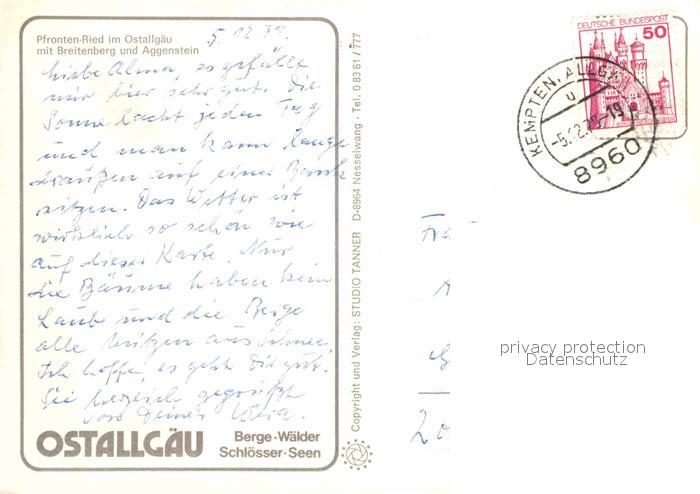 Pfronten-Ried im Ostallgäu
mit Breitenberg und Aggenstein
5. 12. 79.
Liebe Alma, es gefällt
mir hier sehr gut. Die
Sonne lacht jeden Tag
und man kann lange
draußen auf einer Bank
sitzen. Das Wetter ist
wirklich so schön wie
auf dieser Karte. Nur
die Bäume haben kein
Laub und die Berge
alle Mützen aus Schnee.
Ich hoffe, es geht Dir gut.
Sei herzlich gegrüßt
von Deiner Vera.
OSTALLGÄU
Berge·Wälder
Schlösser·Seen
Copyright und Verlag: STUDIO TANNER D-8964 Nesselwang · Tel. 0 83 61 / 777
DEUTSCHE BUNDESPOST
50
KEMPTEN, ALLG
u
-5.12.79-19
8960
privacy protection
Datenschutz